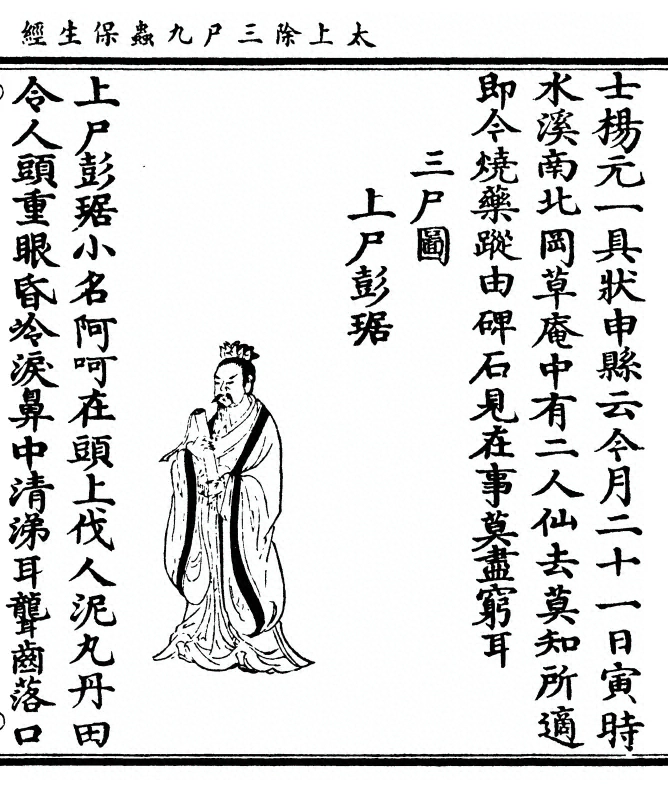 太上除三尸九蟲保生經
士楊元一具狀申縣云今月二十一日寅時
水溪南北岡草庵中有二人仙去莫知所適
即今燒藥蹤由碑石見在事莫盡窮耳
三尸圖
上尸彭琚
上尸彭琚小名阿呵在頭上伐人泥丸丹田
令人頭重眼昏冷淚鼻中清涕耳聾齒落口